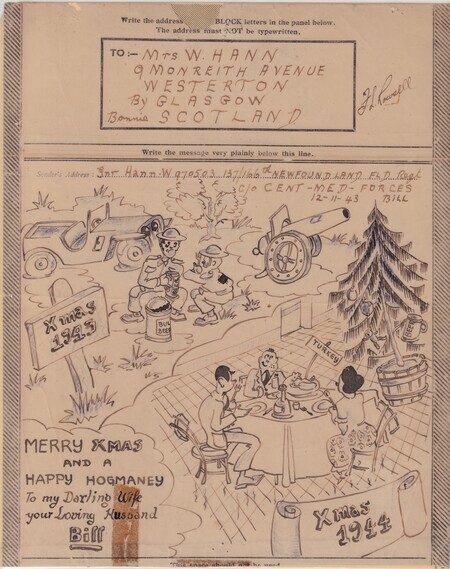 Write the address BLOCK letters in the panel below.
The address must NOT be typewritten.
TO:- Mrs W. HANN
9 MONREITH AVENUE
WESTERTON
By GLASGOW
Bonnie SCOTLAND
Write the message very plainly below this line.
Sender's Address: Gnr Hann-W 970503 137/166th NEWFOUNDLAND FLD Regt
c/o CENT-MED-FORCES
12-11-43 BILL
Xmas
1943
BULLY
BEEF
TURKEY
BEER
MERRY XMAS
AND A
HAPPY HOGMANEY
To my Darling Wife
your Loving Husband
Bill
Xmas
1944